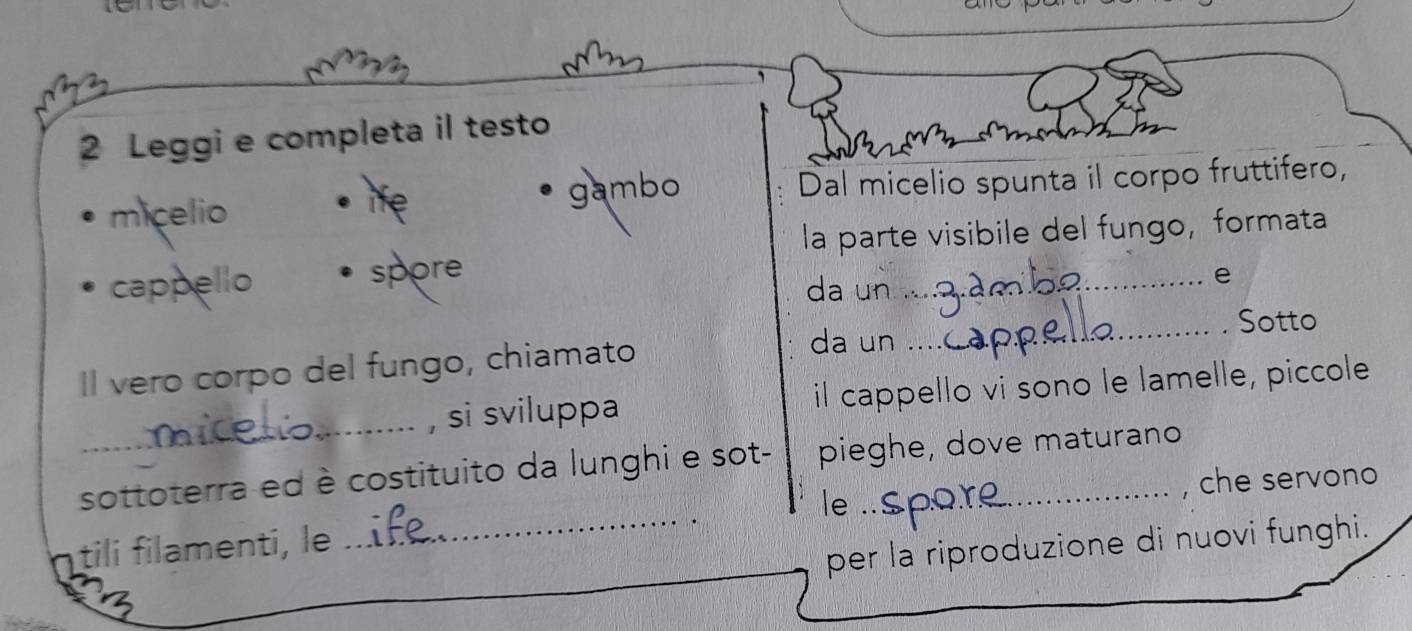 2 Leggi e completa il testo
• micelio • ife • gambo
• cappello • spore
Il vero corpo del fungo, chiamato
micelio, si sviluppa
sottoterra ed è costituito da lunghi e sot-
tili filamenti, le ife.
Dal micelio spunta il corpo fruttifero,
la parte visibile del fungo, formata
da un gambo e
da un cappello. Sotto
il cappello vi sono le lamelle, piccole
pieghe, dove maturano
le spore, che servono
per la riproduzione di nuovi funghi.